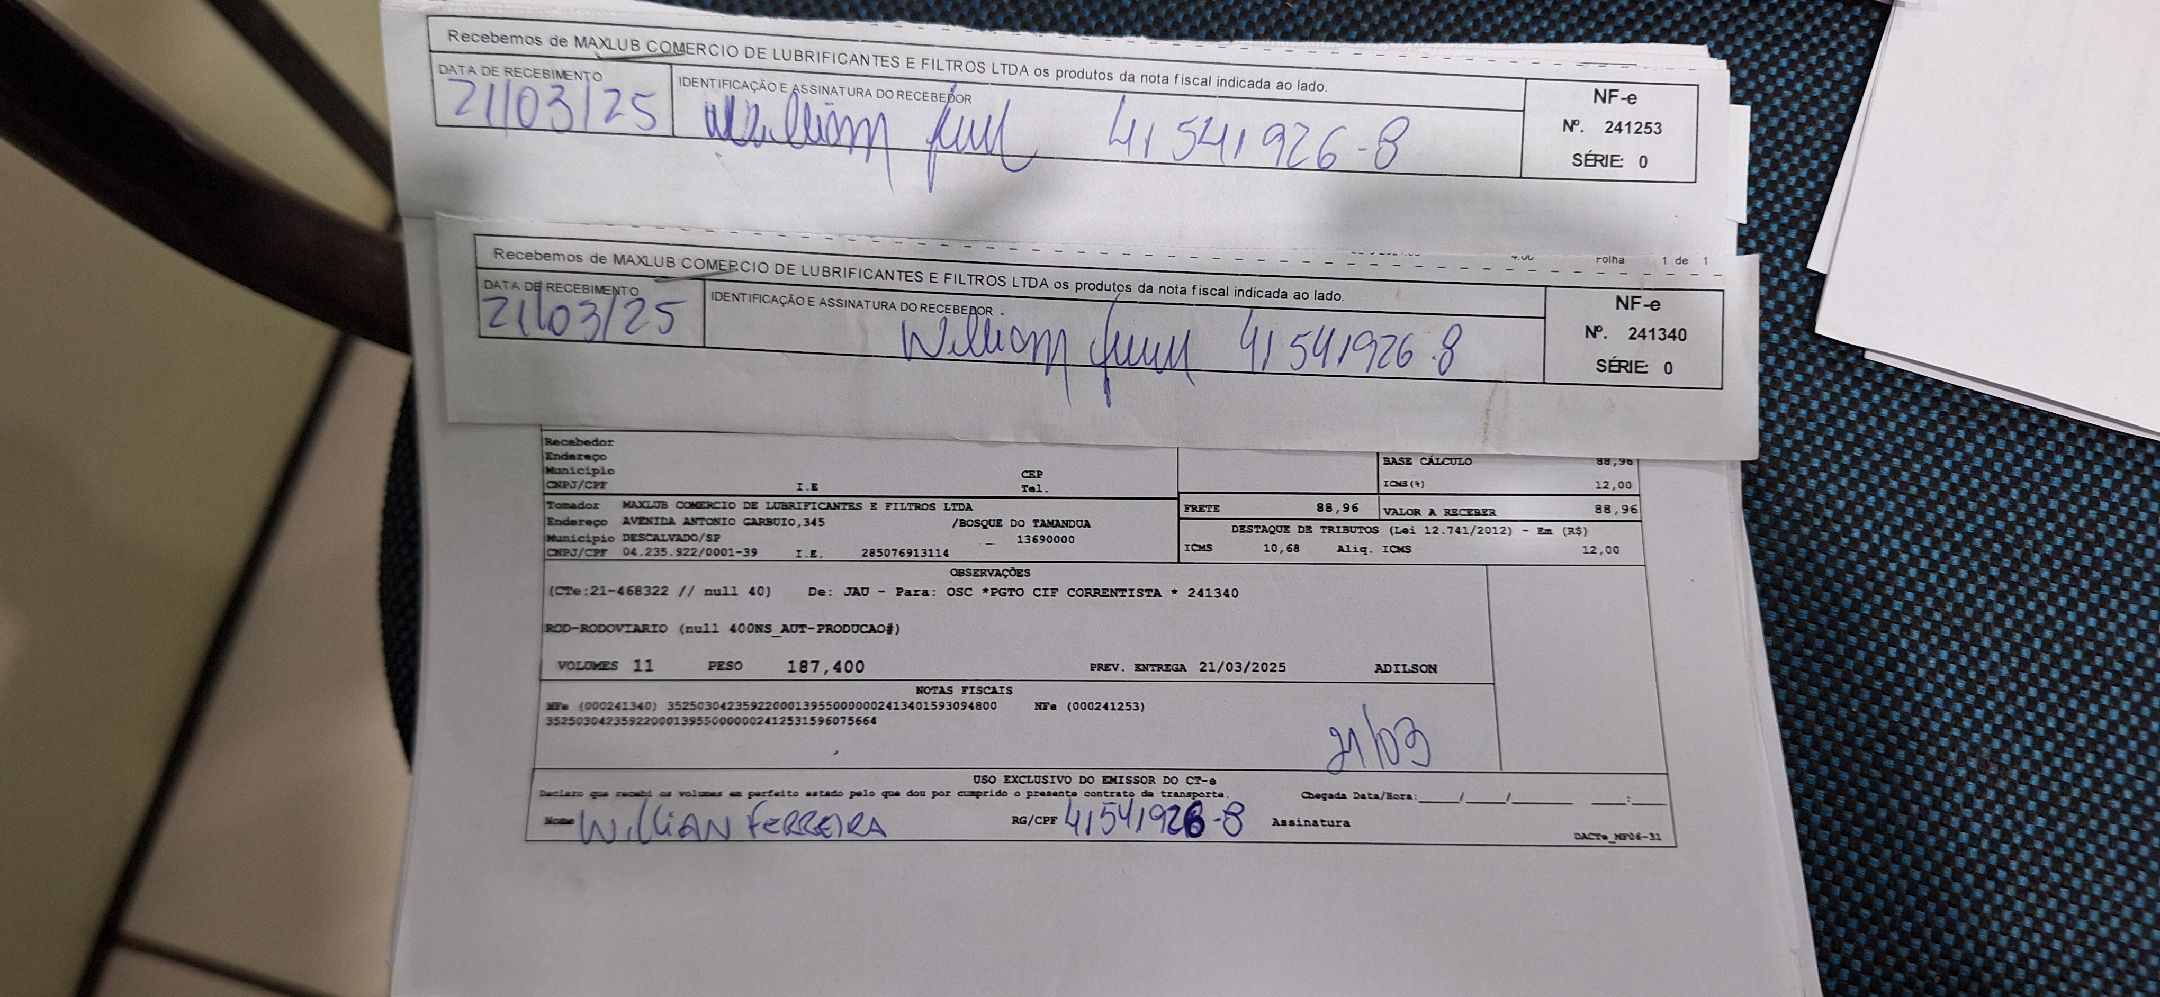 Recebemos de MAXLUB COMERCIO DE LUBRIFICANTES E FILTROS LTDA os produtos da nota fiscal indicada ao lado.
DATA DE RECEBIMENTO IDENTIFICAÇÃO E ASSINATURA DO RECEBEDOR
21/03/25 41541926-8
NF-e
Nº. 241253
SÉRIE: 0
Folha 1 de 1
Recebemos de MAXLUB COMERCIO DE LUBRIFICANTES E FILTROS LTDA os produtos da nota fiscal indicada ao lado.
DATA DE RECEBIMENTO IDENTIFICAÇÃO E ASSINATURA DO RECEBEDOR
21/03/25 William 41541926-8
NF-e
Nº. 241340
SÉRIE: 0
Recebedor
Endereço
Município CEP
CNPJ/CPF I.E Tel.
BASE CÁLCULO 88,96
ICMS(%) 12,00
Tomador MAXLUB COMERCIO DE LUBRIFICANTES E FILTROS LTDA
Endereço AVENIDA ANTONIO GARBUIO,345 /BOSQUE DO TAMANDUA
Município DESCALVADO/SP 13690000
CNPJ/CPF 04.235.922/0001-39 I.E. 285076913114
FRETE 88,96 VALOR A RECEBER 88,96
DESTAQUE DE TRIBUTOS (Lei 12.741/2012) - Em (R$)
ICMS 10,68 Aliq. ICMS 12,00
OBSERVAÇÕES
(CTe:21-468322 // null 40) De: JAU - Para: OSC *PGTO CIF CORRENTISTA * 241340
ROD-RODOVIARIO (null 400NS_AUT-PRODUCAO#)
VOLUMES 11 PESO 187,400 PREV. ENTREGA 21/03/2025 ADILSON
NOTAS FISCAIS
NFe (000241340) 35250304235922000139550000002413401593094800 NFe (000241253)
35250304235922000139550000002412531596075664
21/03
USO EXCLUSIVO DO EMISSOR DO CT-e
Declaro que recebi os volumes em perfeito estado pelo que dou por cumprido o presente contrato de transporte. Chegada Data/Hora:____/____/______ ____:____
Nome WilliAN FERREIRA RG/CPF 41541926-8 Assinatura
DACTe_NF06-31